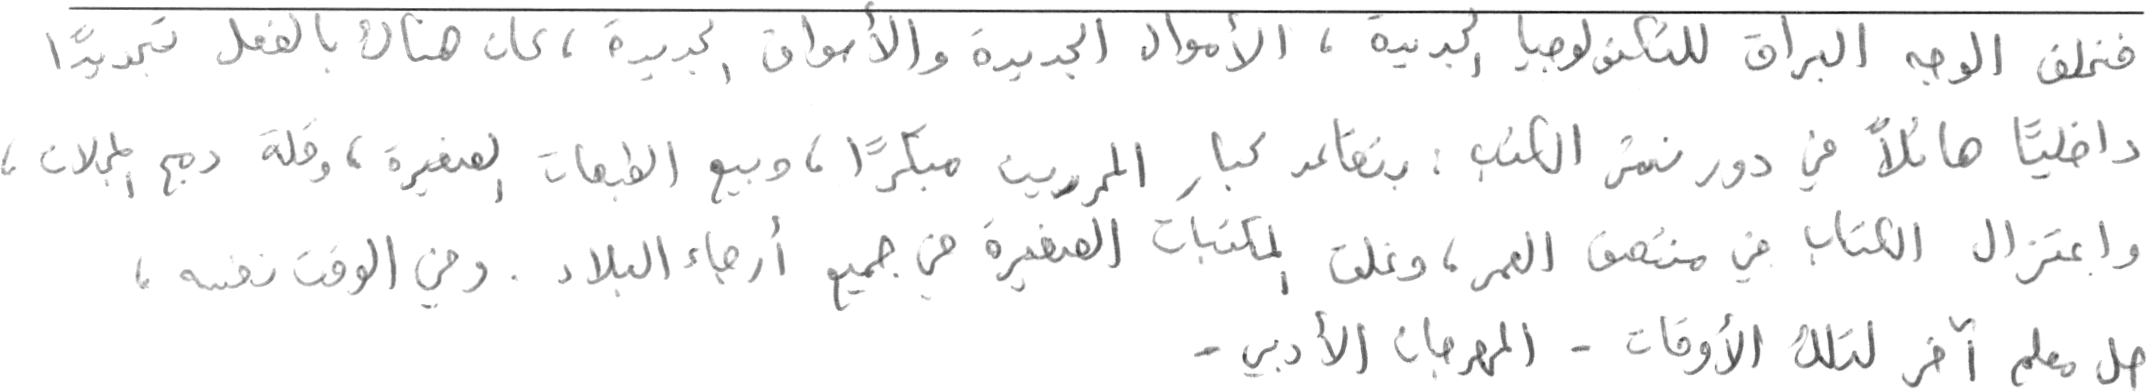 فخلف الوجه البراق للتكنولوجيا الجديدة ، الأموال الجديدة والأسواق الجديدة ، كان هناك بالفعل تجديدًا
داخليًّا هائلاً في دور نشر الكتب : بتقاعد كبار المحررين مبكرًا ، وبيع الطبعات الصغيرة ، وقلة دمج المجلات ،
واعتزال الكتاب في منتصف العمر ، وغلق المكتبات الصغيرة في جميع أرجاء البلاد . وفي الوقت نفسه ،
حل معلم آخر لتلك الأوقات - المهرجان الأدبي -